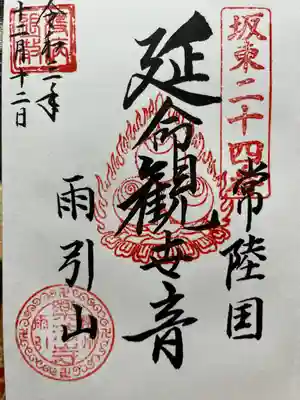 坂東二十四
常陸国
延命観世音
雨引山
令和三年
十二月十二日